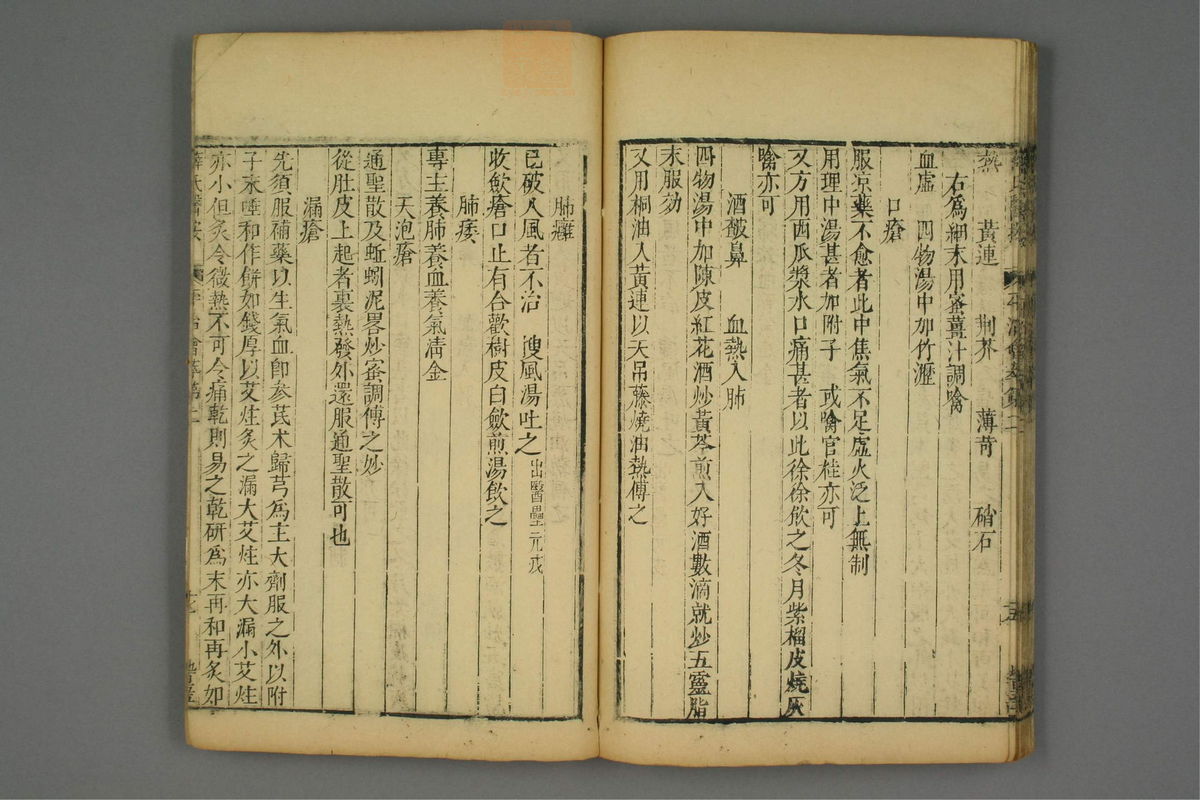 熱　黃連　荆芥　薄荷　硝石
右爲細末用蜜薑汁調噙
血虛　四物湯中加竹瀝
口瘡
服凉藥不愈者此中焦氣不足虛火泛上無制
用理中湯甚者加附子　或噙官桂亦可
又方用西瓜漿水口痛甚者以此徐徐飲之冬月紫榴皮燒灰
噙亦可
酒皶鼻　血熱入肺
四物湯中加陳皮紅花酒炒黃芩煎入好酒數滴就炒五靈脂
末服効
又用桐油入黃連以天吊藤燒油熱傅之
肺癰
已破入風者不治　搜風湯吐之出醫壘元戎
收斂瘡口止有合歡樹皮白斂煎湯飲之
肺痿
專主養肺養血養氣淸金
天泡瘡
通聖散及蚯蚓泥畧炒蜜調傅之妙
從肚皮上起者裏熱發外還服通聖散可也
漏瘡
先須服補藥以生氣血即参芪术歸芎爲主大劑服之外以附
子末唾和作餠如錢厚以艾炷灸之漏大艾炷亦大漏小艾炷
亦小但灸令微熱不可令痛乾則易之乾硏爲末再和再灸如